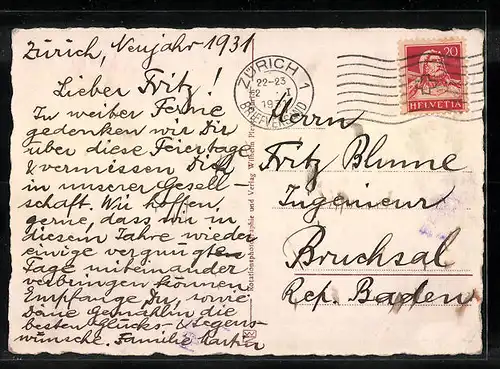 Zürich, Neujahr 1931
Lieber Fritz!
In weiter Ferne
gedenken wir Dir
über diese Feiertage
& vermissen Dich
in unserer Gesell-
schaft. Wir hoffen
gerne, dass wir in
diesem Jahre wieder
einige vergnügten
Tage miteinander
verbringen können
Empfange Du, sowie
Deine Gemahlin die
besten Glücks- & Segens-
wünsche. Familie
ZÜRICH 1
22-23
2. I
BRIEFVERSAND
20
HELVETIA
Herrn
Fritz Blume
Ingenieur
Bruchsal
Rep. Baden
und Verlag Wilhelm